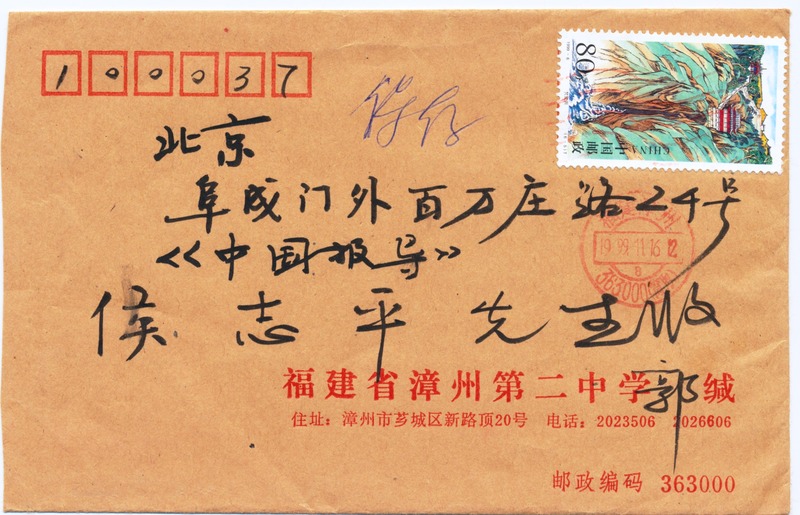 100037
待存
80
CHINA 中国邮政
北京
阜成门外百万庄路24号
《中国报导》
侯志平先生收
1999.11.16 12
363000
福建省漳州第二中学 郭 缄
住址：漳州市芗城区新路顶20号 电话：2023506 2026606
邮政编码 363000